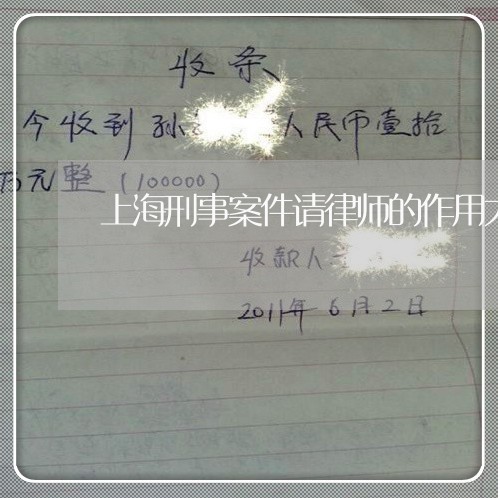 收条
今收到孙 人民币壹拾
万元整(100000)
上海刑事案件请律师的作用
收款人
2011年6月2日